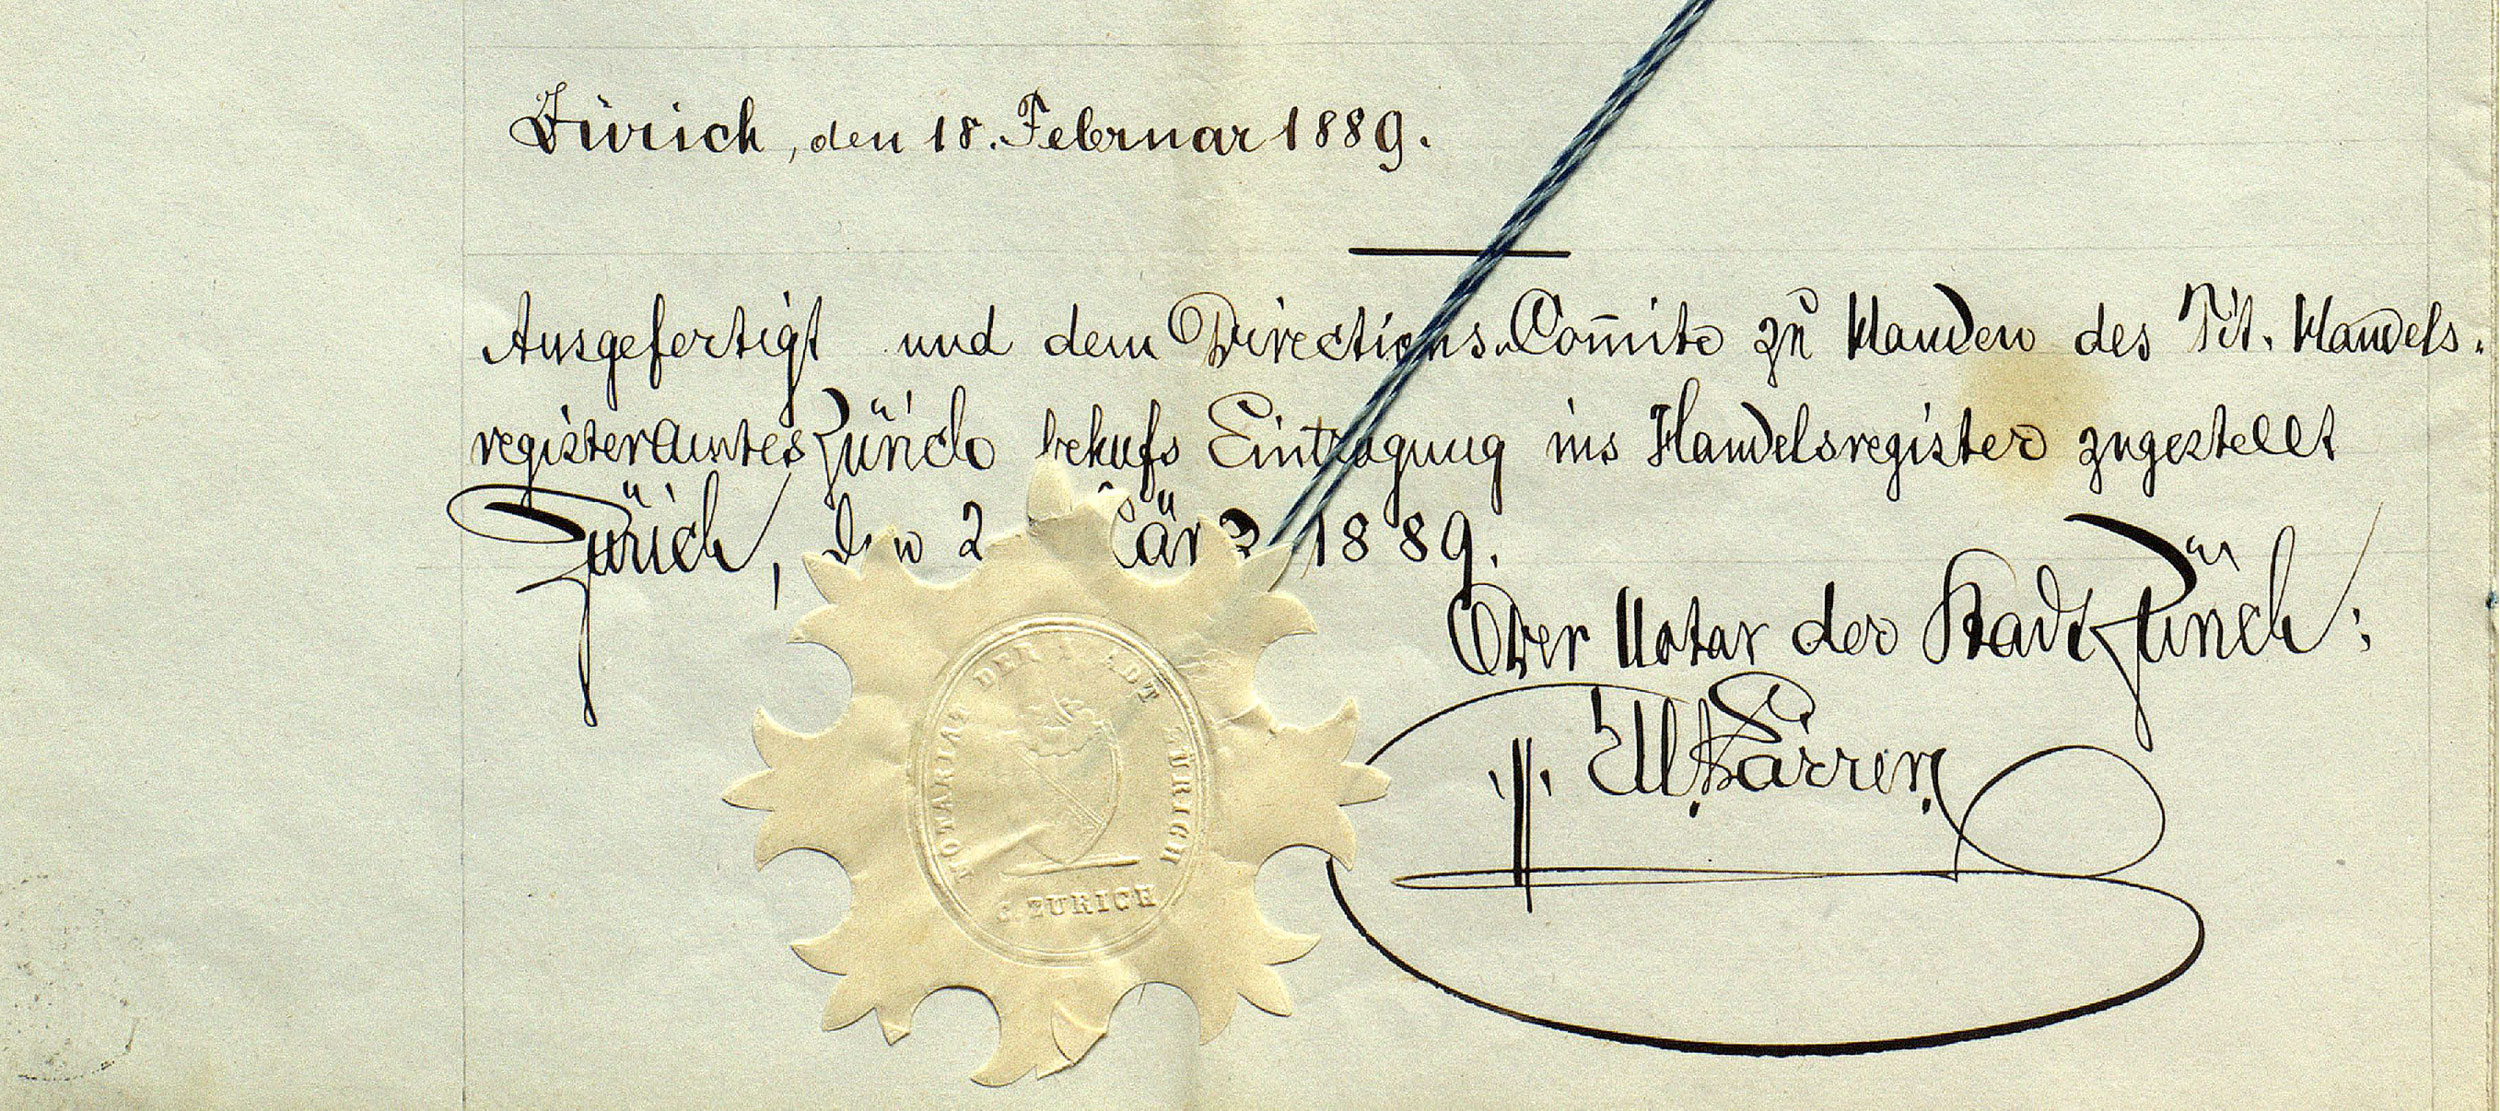 Zürich, den 18. Februar 1889.
Ausgefertigt und dem Directions-Com̅ite zu Handen des Tit. Handels-
registeramtes Zürich behufs Eintragung ins Handelsregister zugestellt
Zürich, den 2 März 1889.
Ober Notar der Stadt Zürich:
NOTARIAT DER STADT ZÜRICH
C. ZURICH